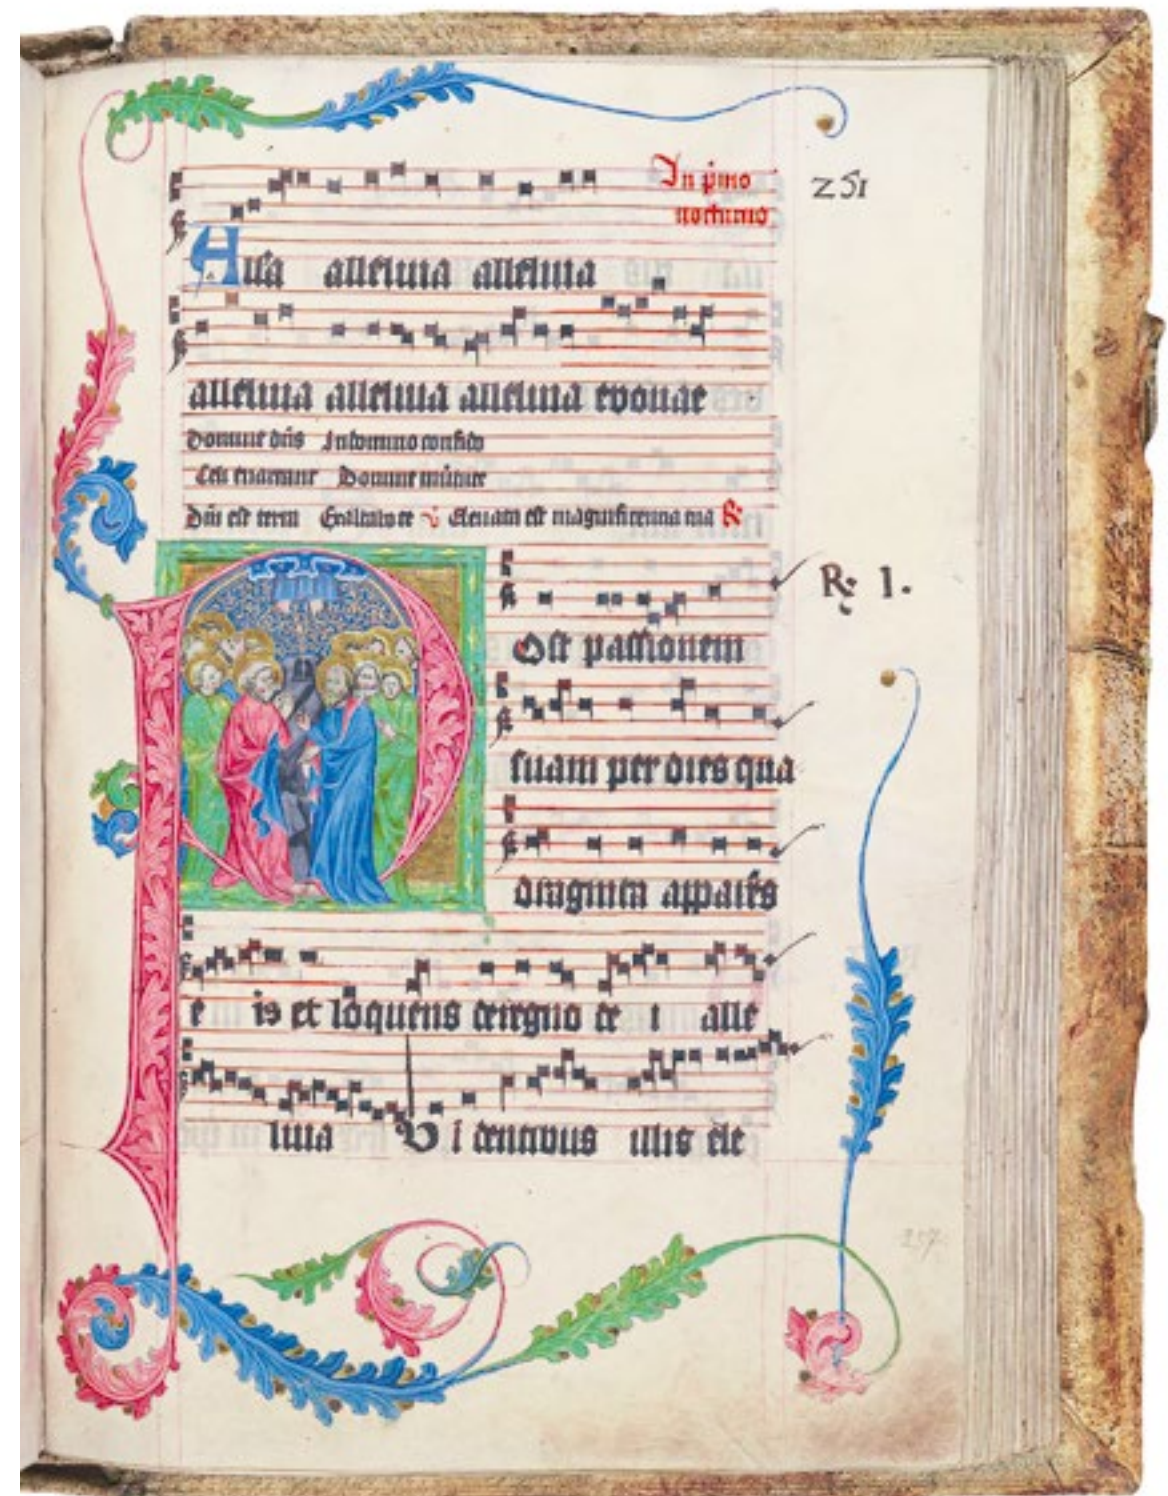 In p̄mo
nocturno
251
Alla alleluia alleluia
alleluia alleluia alleluia evouae
Domine dn̄s In domino confido
Celi enarrant Domine
Dn̄i est terra Exaltabo te ℣ Eleuata est magnificencia tua ℟
R: 1.
Post passionem
suam per dies qua
draginta apparēs
e is et loquens de regno de i alle
luia Vi dentibus illis ele
257